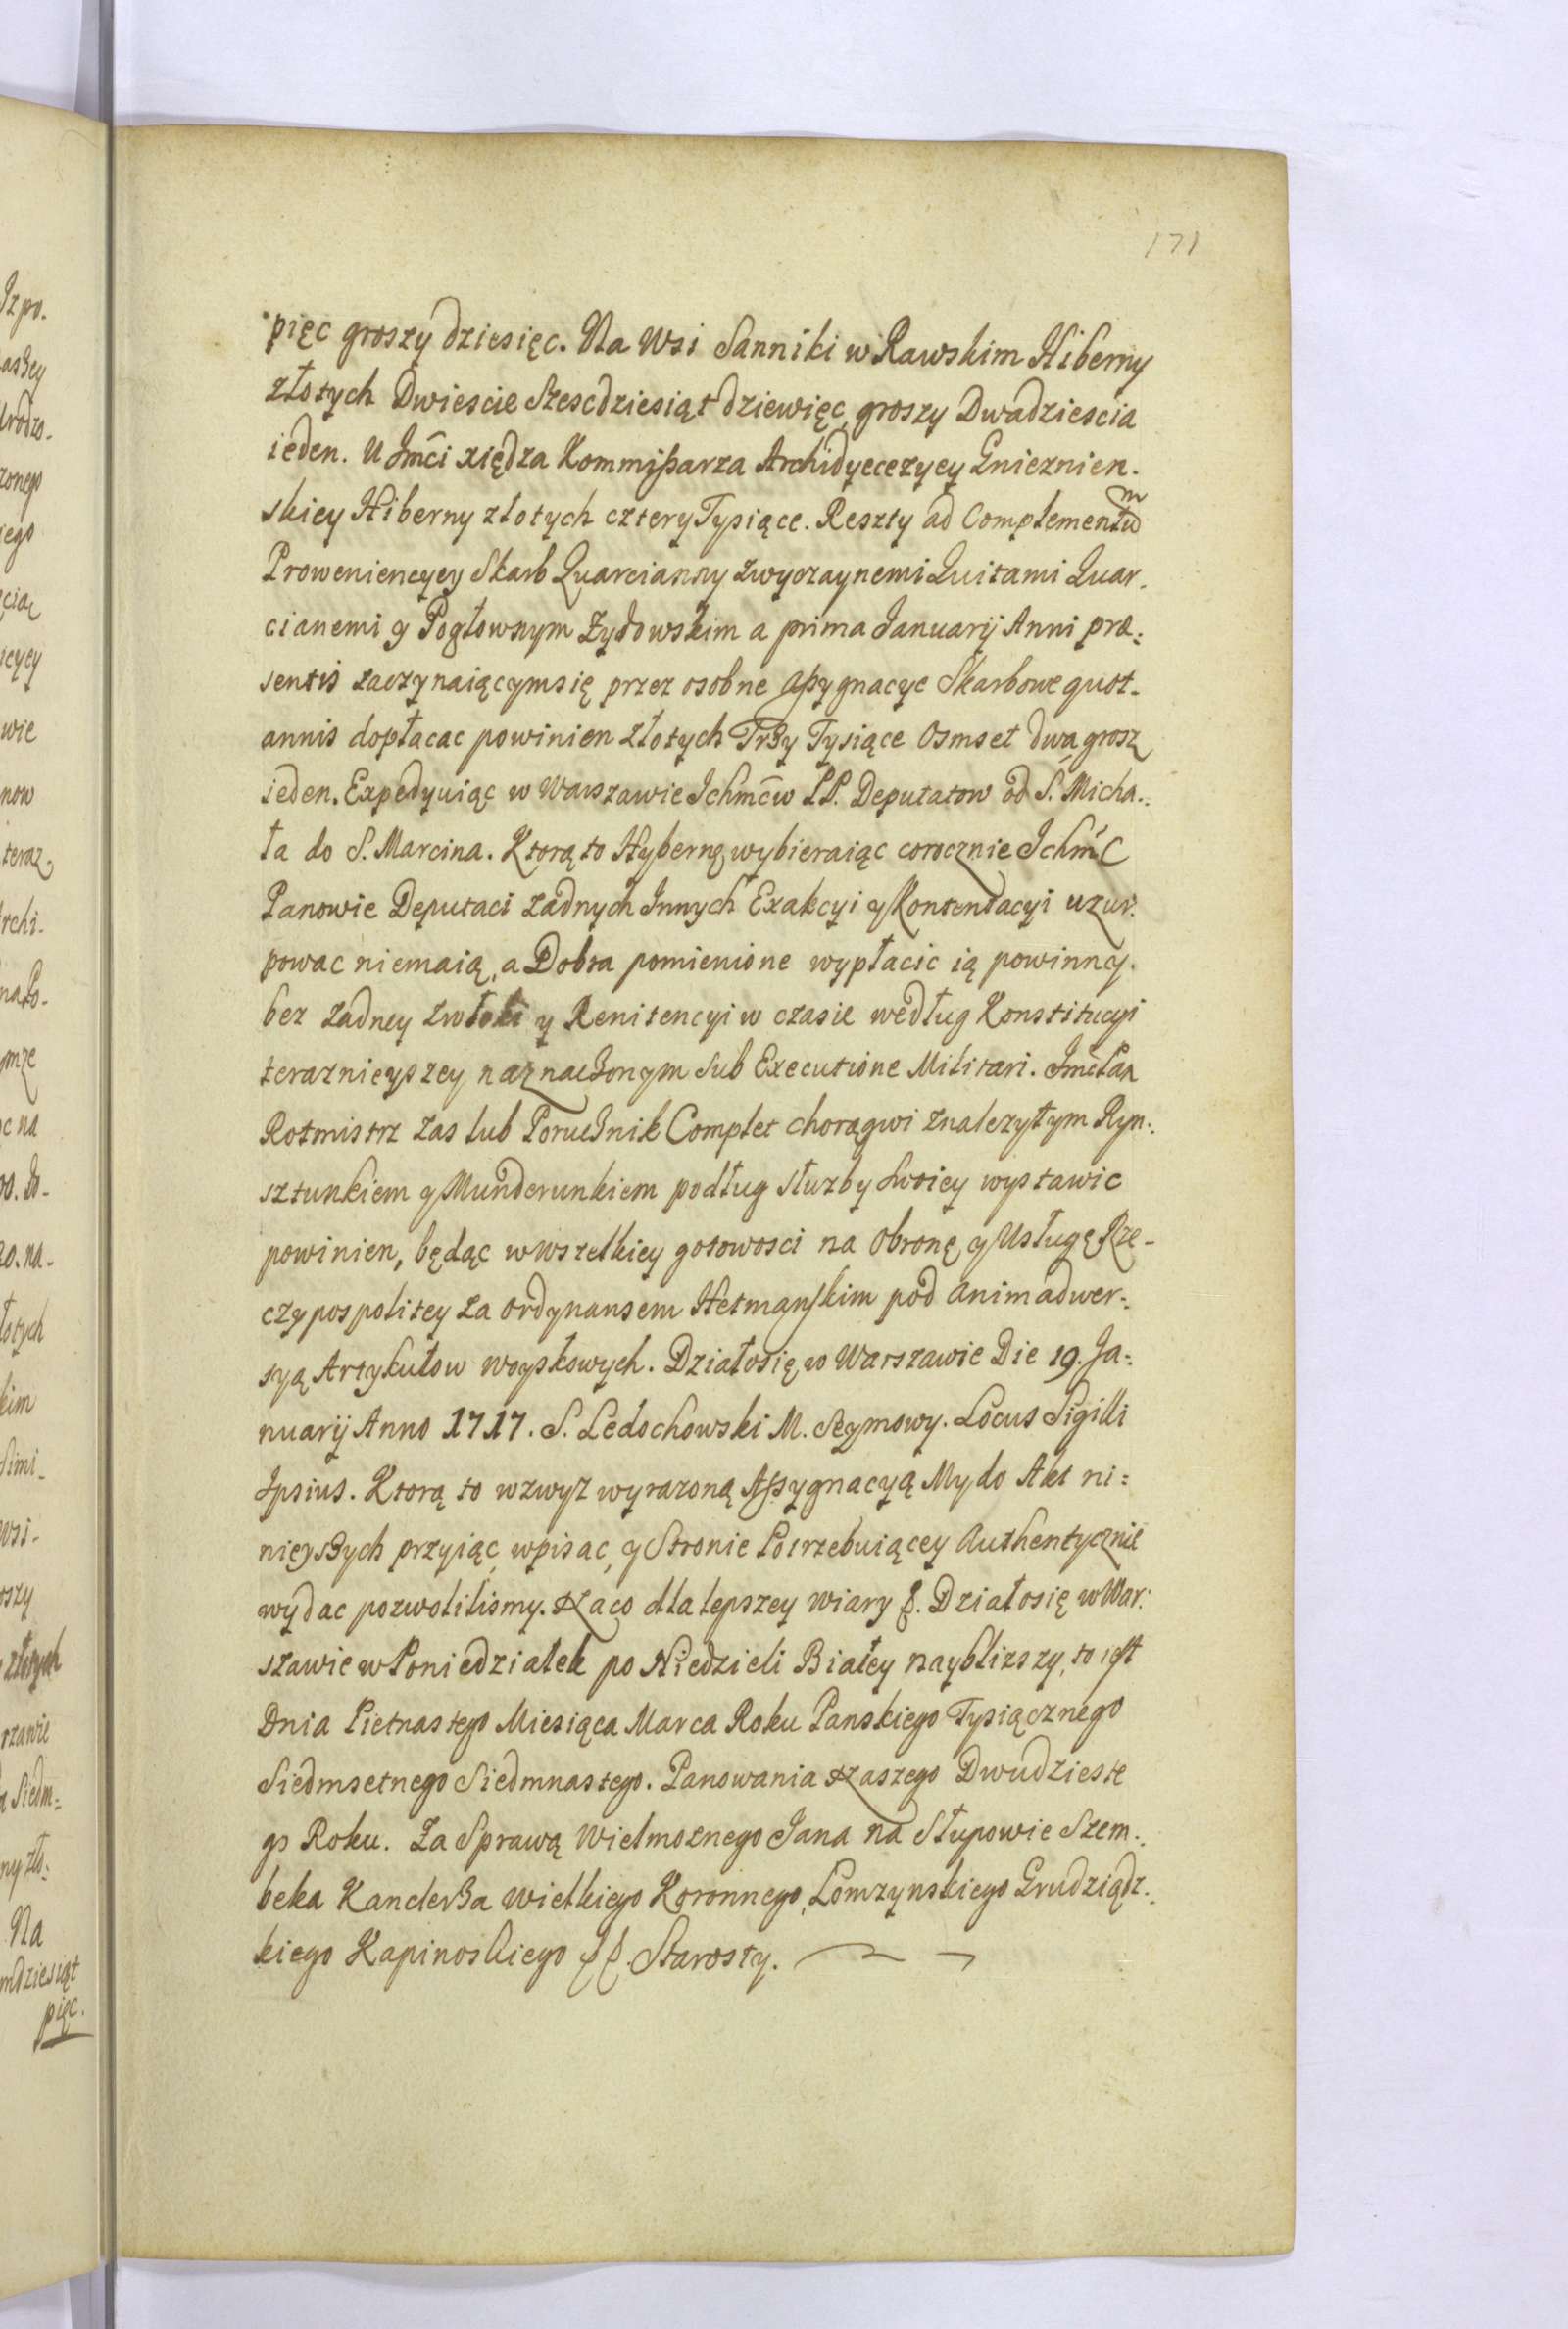 171
pięc groszy dziesięc. Na Wsi Sanniki w Rawskim Hiberny
złotych Dwiescie Szescdziesiąt dziewięc, groszy Dwadziescia
ieden. U Jmći xiędza Kommißarza Archidyecezycy Gnieznien-
skiey Hiberny złotych cztery Tysiące. Reszty ad Complementu͠m
Proweniencyey Skarb Quarcianny zwyczaynemi Quitami Quar-
cianemi y Pogłownym Zydowskim a prima Januarij Anni præ=
sentis zaczynaiącym się przez osobne Aßygnacye Skarbowe quot-
annis dopłacac powinien złotych Trzy Tysiące Osmset dwa, grosz
ieden. Expedyuiąc w Warszawie Ichmćw PP. Deputatow od S. Micha-
ła do S. Marcina. Ktorą to Hybernę wybieraiąc corocznie Ichmć
Panowie Deputaci zadnych Innych Exakcyi y Kontentacyi uzur-
powac niemaią, a Dobra pomienione wypłacic ią powinny.
bez zadney zwłoki y Renitencyi w czasie według Konstitucyi
teraznieyszey naznaczonym sub Executione Militari. Jmć Pan
Rotmistrz zas lub Porucznik Complet chorągwi znalezytym Ryn-
sztunkiem y Munderunkiem podług słuzby swoiey wystawic
powinien, będąc w wszelkiey gotowosci na Obronę y Usługę Rze-
czypospolitey za ordynansem Hetmanskim pod animadwer-
syą Artykułow woyskowych. Działo się w Warszawie Die 19. Ja-
nuarij Anno 1717. S. Ledochowski M. Seymowy. Locus Sigilli
Ipsius. Ktorą to wzwyz wyrazoną Aßygnacyą My do Akt ni=
nieyszych przyiąc, wpisac, y Stronie Potrzebuiącey Authentycznie
wydac pozwolilismy. Na co dla lepszey wiary &. Działo się w War-
szawie w Poniedziałek po Niedzieli Białey nayblizszy, to iest
Dnia Pietnastego Miesiąca Marca Roku Panskiego Tysiącznego
Siedmsetnego Siedmnastego. Panowania Naszego Dwudzieste
go Roku. Za Sprawą Wielmoznego Jana na Słupowie Szem-
beka Kanclerza Wielkiego Koronnego, Lomzynskiego Grudziądz-
kiego Kapinoskiego &&. Starosty.